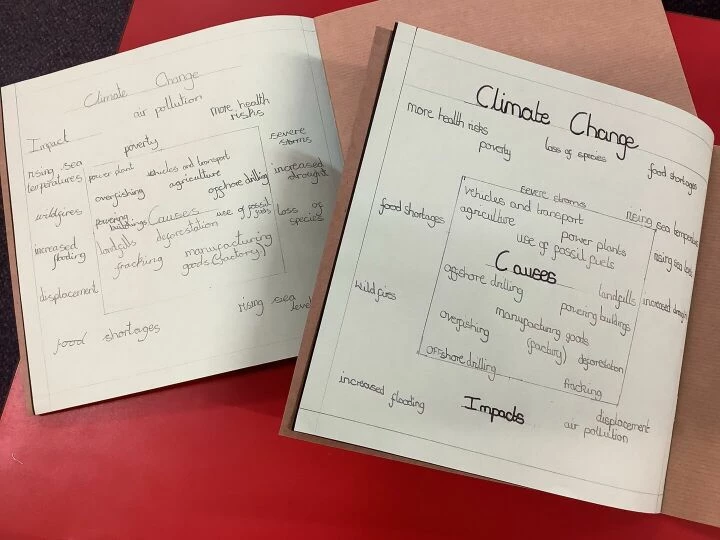 Climate Change
air pollution
more health
risks
Impact
poverty
severe
storms
rising sea
temperatures
power plant
vehicles and transport
increased
drought
overfishing
agriculture
offshore drilling
wildfires
powering
buildings
Causes
use of fossil
fuels
loss of
species
increased
flooding
landfills
deforestation
fracking
manufacturing
goods (factory)
displacement
rising sea
food shortages
Climate Change
more health risks
poverty
loss of species
food shortages
severe storms
vehicles and transport
rising sea
food shortages
agriculture
power plants
use of fossil fuels
rising sea
Causes
offshore drilling
landfills
increased drought
wildfires
powering buildings
overfishing
manufacturing goods
(factory)
deforestation
offshore drilling
fracking
increased flooding
Impacts
displacement
air pollution